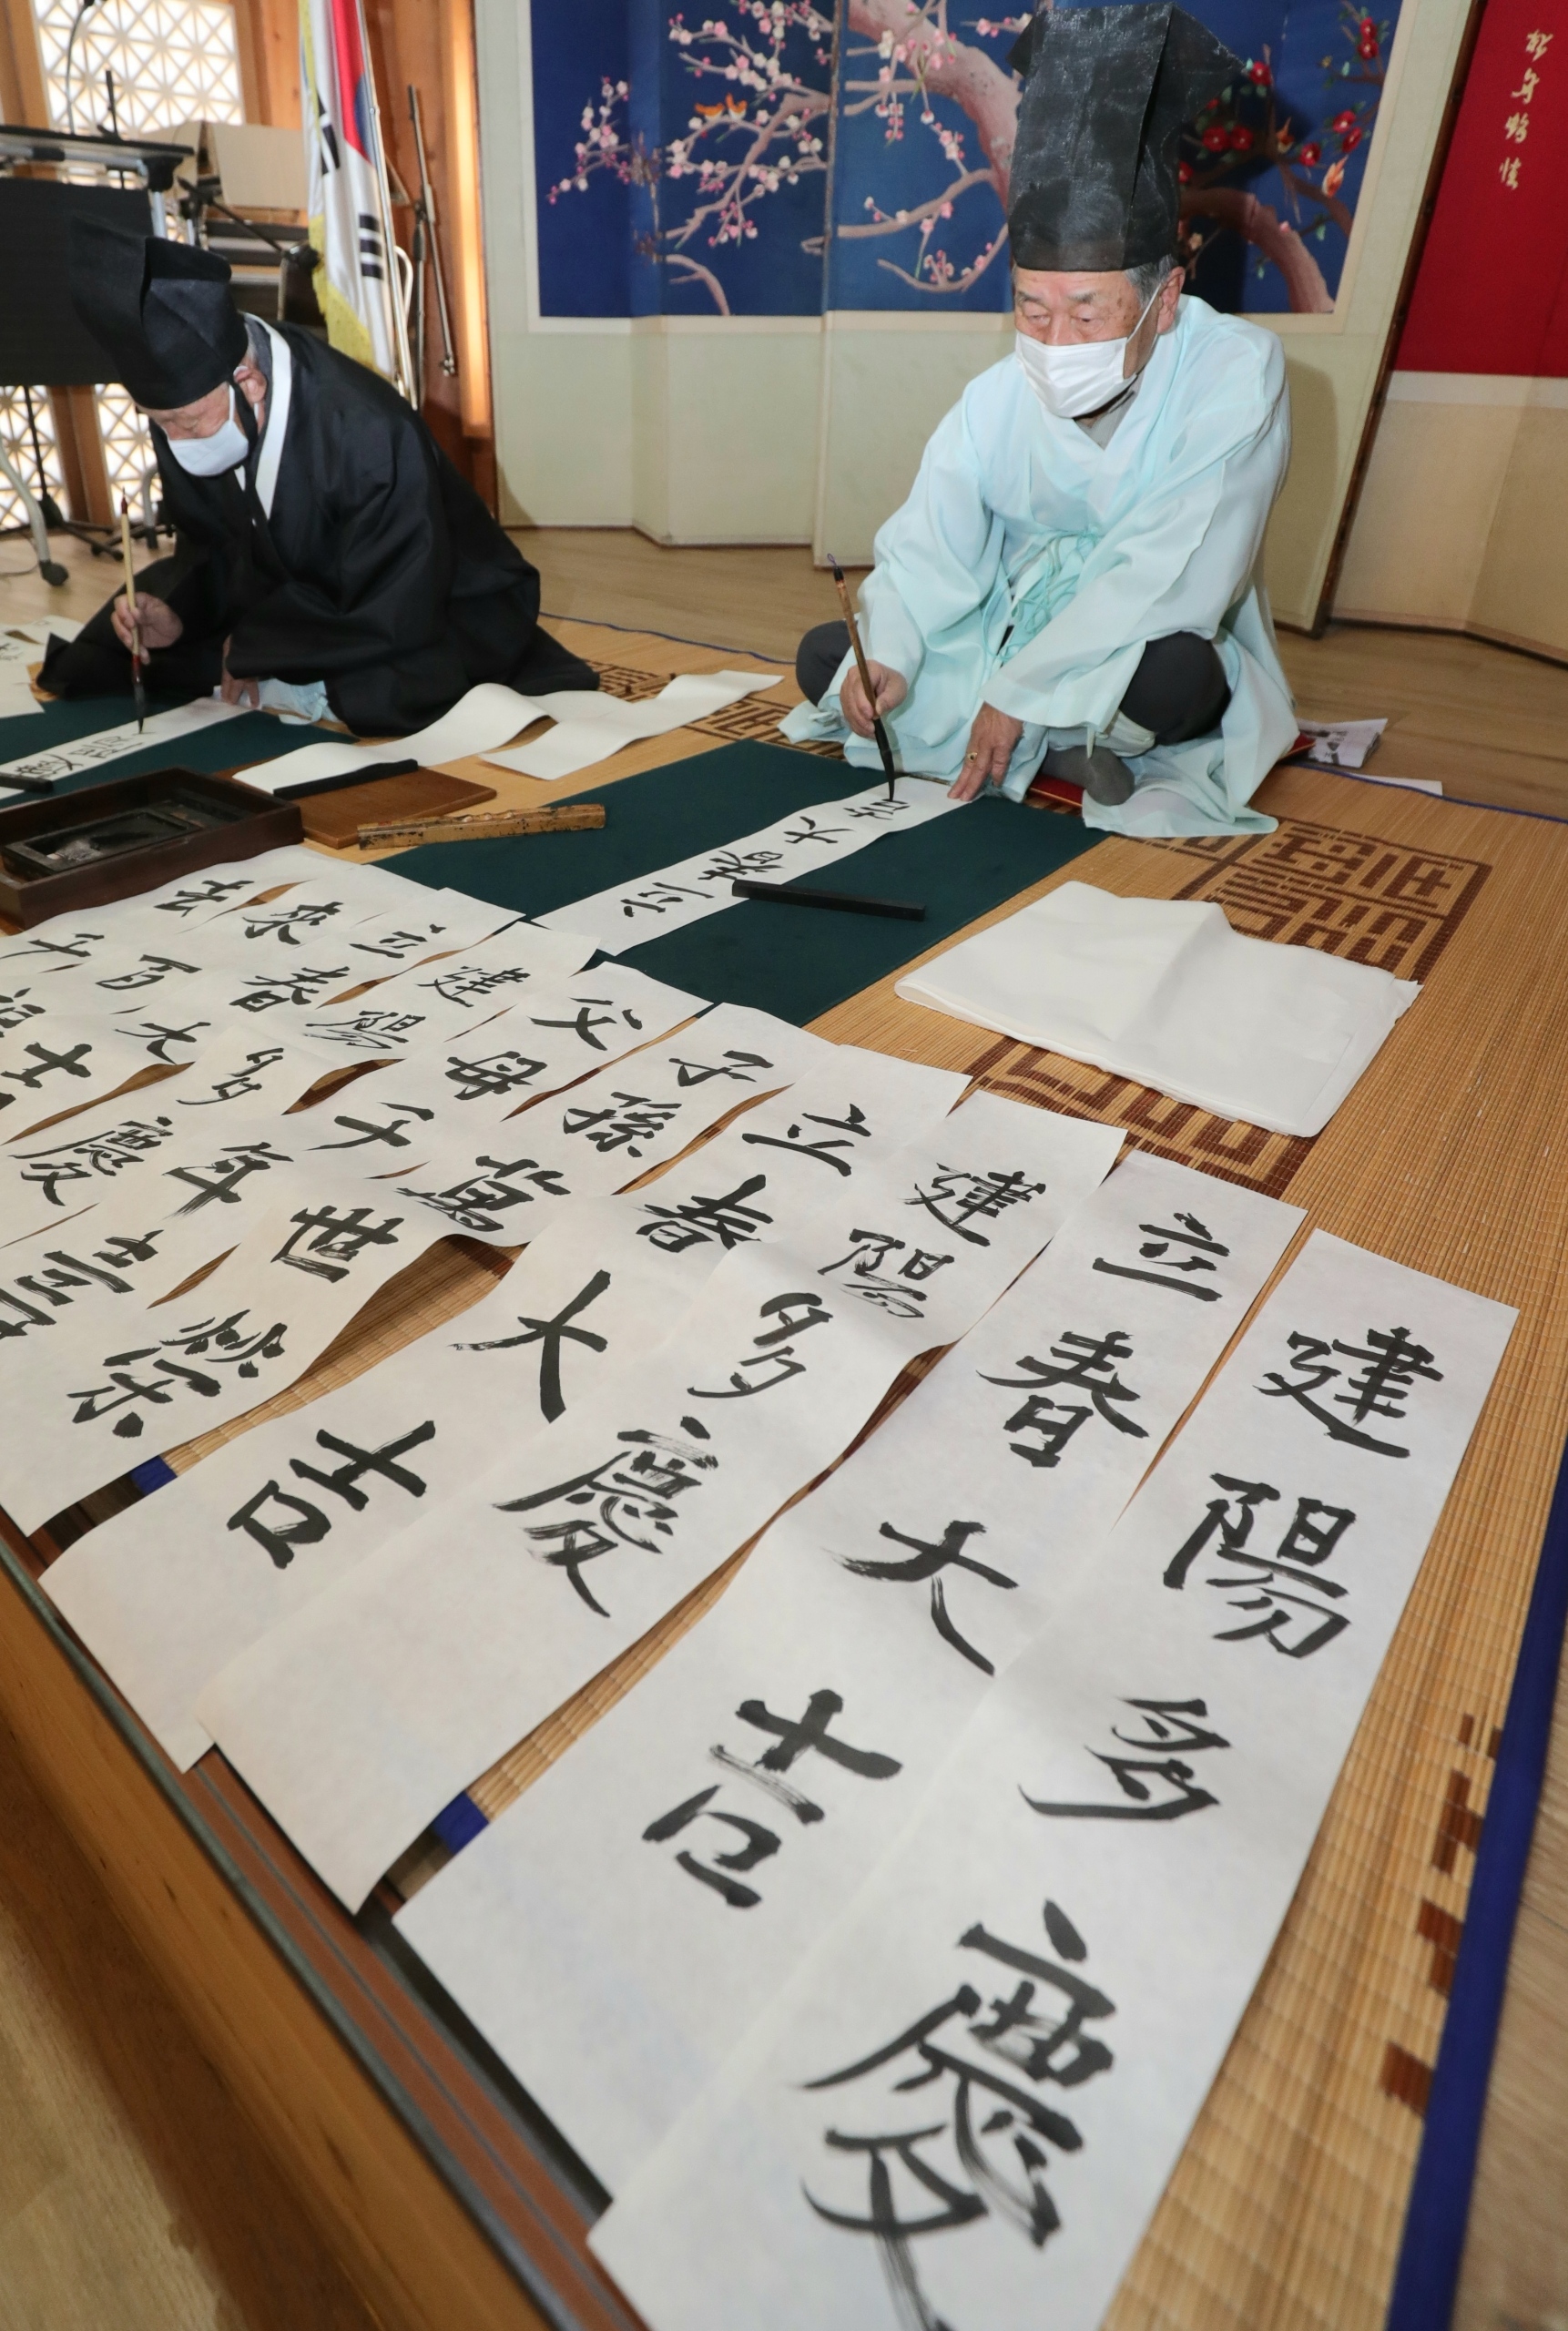 建陽多慶
立春大吉
建陽多慶
立春大吉
子孫萬世榮
父母千年壽
建陽多慶
立春大吉
來百福
去千
立春大吉